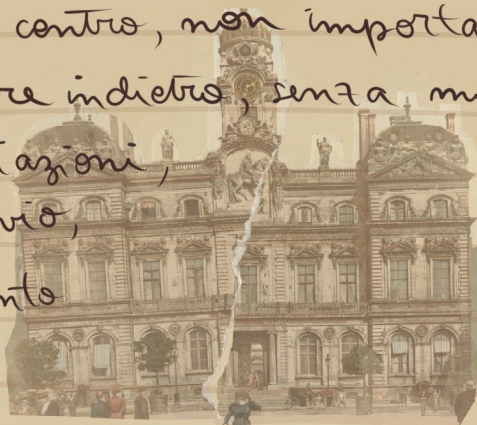 contro, non importa
re indietro, senza m
tazioni,
vio,
nto